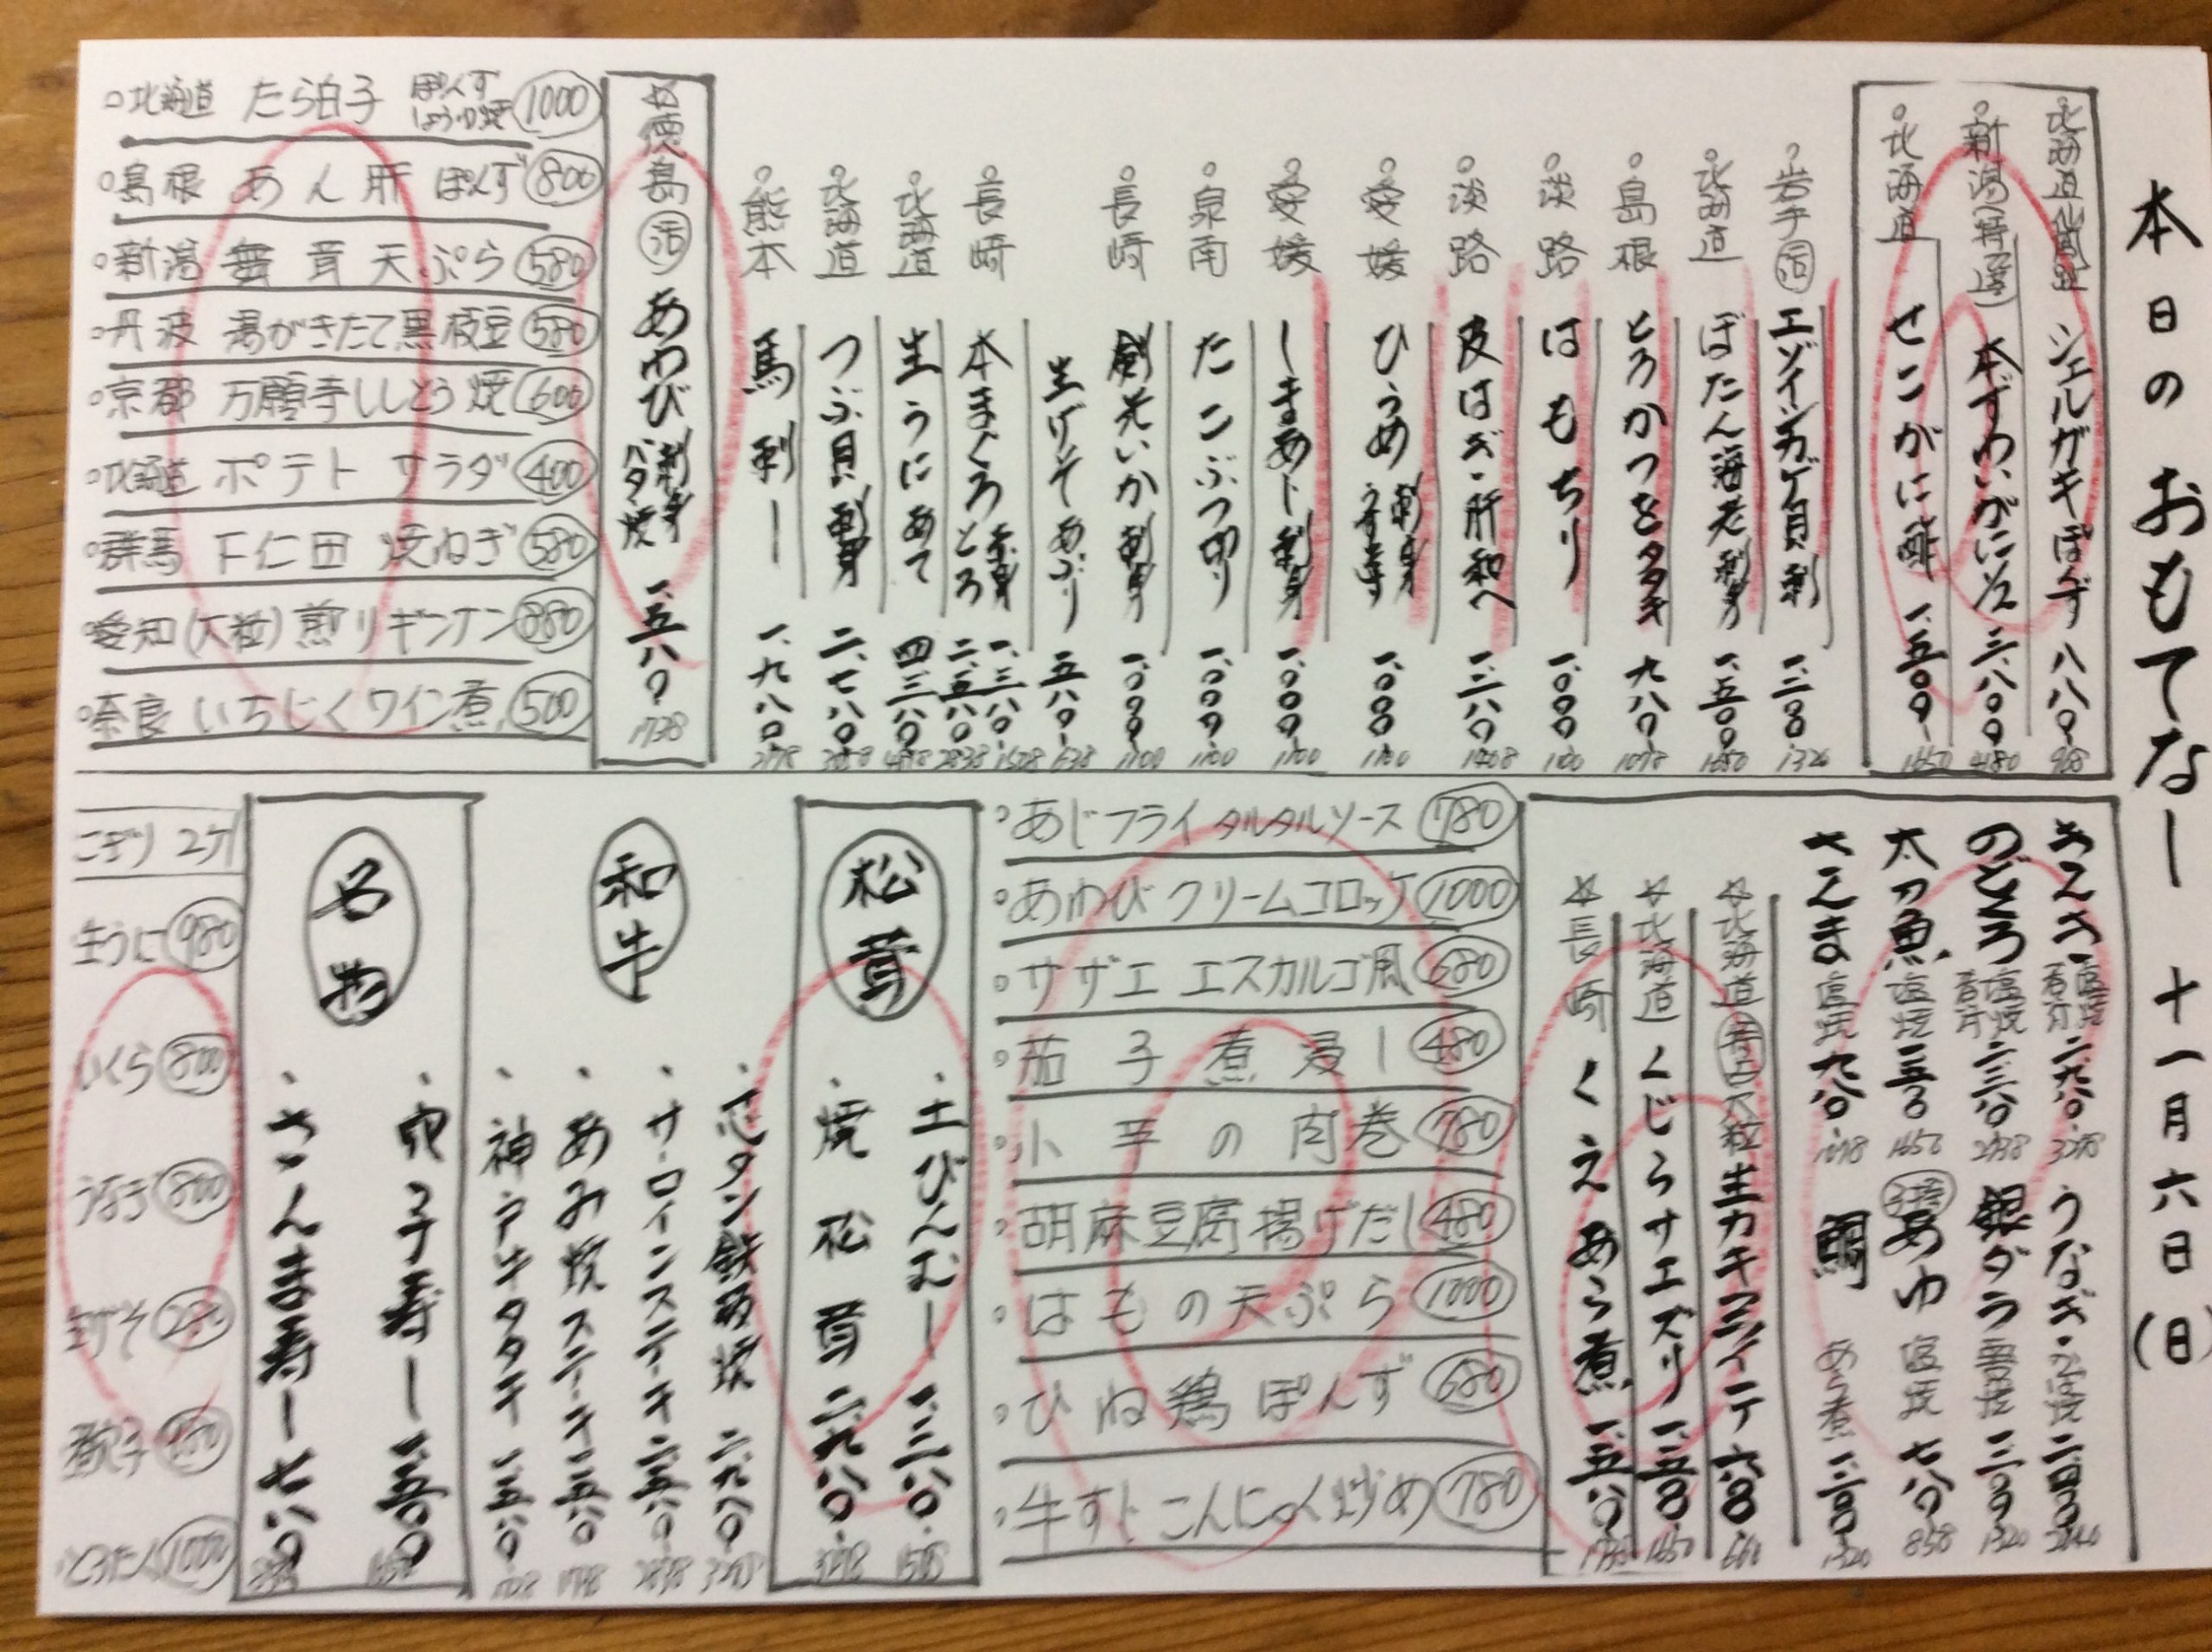 本日のおもてなし 十一月六日(日)
北海道仙鳳趾 シェルガキぽんず 八八〇 968
新潟(特選) 本ずわいがに 三、八〇〇 4180
北海道 せこがに酢 一、五〇〇 1650
岩手 活 エゾイシカゲ貝 刺 一、二〇〇 1320
北海道 ぼたん海老 刺身 一、五〇〇 1650
島根 とろかつをタタキ 九八〇 1078
淡路 はもちり 一、〇〇〇 1100
淡路 皮はぎ・肝和へ 一、二八〇 1408
愛媛 ひらめ 刺身 うす造り 一、〇〇〇 1100
愛媛 しまあじ 刺身 一、〇〇〇 1100
泉南 たこぶつ切り 一、〇〇〇 1100
長崎 剣先いか 刺身 一、〇〇〇 1100
生げそあぶり 五八〇 638
長崎 本まぐろ 赤身 一、三八〇 1518
とろ 二、五八〇 2838
北海道 生うにあて 四、三八〇 4818
北海道 つぶ貝 刺身 二、七八〇 3058
熊本 馬刺し 一、九八〇 2178
☆徳島 活 あわび 刺身 バタ焼 一、五八〇 1738
北海道 たら白子 ぽんず しょうゆ焼 1000
島根 あん肝 ぽんず 800
新潟 舞茸天ぷら 580
丹波 湯がきたて黒枝豆 580
京都 万願寺ししとう焼 600
北海道 ポテトサラダ 400
群馬 下仁田 焼ねぎ 580
愛知(大粒)煎りギンナン 880
奈良 いちじくワイン煮 500
きんき 塩焼 煮付 二、九八〇 3278 うなぎ・ 二、四〇〇 2640
のどぐろ 塩焼 煮付 二、三八〇 2618 銀ダラ 一、二〇〇 1320
太刀魚 塩焼 一、五〇〇 1650 あゆ 塩焼 七八〇 858
さんま 塩焼 九八〇 1078 鯛 あら煮 一、二〇〇 1320
☆北海道 大粒 生カキフライ 二ケ 六〇〇 660
☆北海道 くじらサエズリ 一、五〇〇 1650
☆長崎 くえ あら煮 一、五八〇 1738
あじフライ タルタルソース 780
あわび クリームコロッケ 1000
サザエ エスカルゴ風 680
茄子煮浸し 480
小芋の肉巻 780
胡麻豆腐揚げだし 480
はもの天ぷら 1000
ひね鶏ぽんず 680
牛すじこんにゃく炒め 780
松茸
土びんむし 一、三八〇 1518
焼松茸 二、九八〇 3278
和牛
芯タン鉄板焼 二、九八〇 3278
サーロインステーキ 二、五八〇 2838
あみ焼ステーキ 一、五八〇
神戸牛タタキ 一、五八〇
名物
穴子寿し 一、五〇〇 1650
さんま寿し 七八〇 858
にぎり 2ケ
生うに 980
いくら 800
うなぎ 800
生げそ 280
とろたく 1000